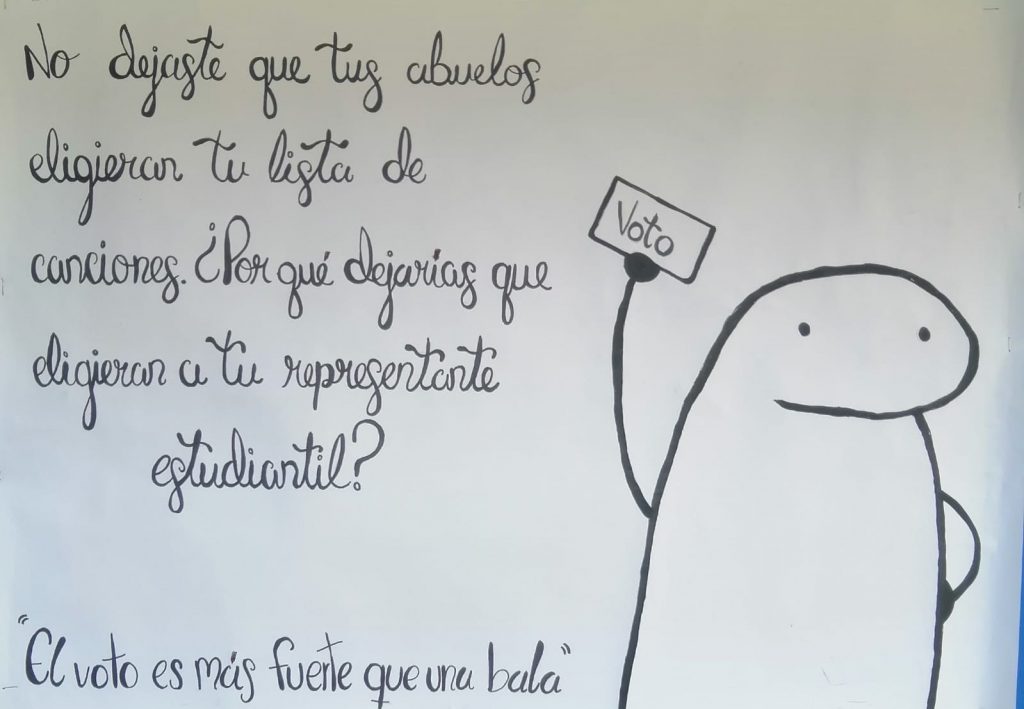 No dejaste que tus abuelos
eligieran tu lista de
canciones. ¿Por qué dejarías que
eligieran a tu representante
estudiantil?
Voto
"El voto es más fuerte que una bala"